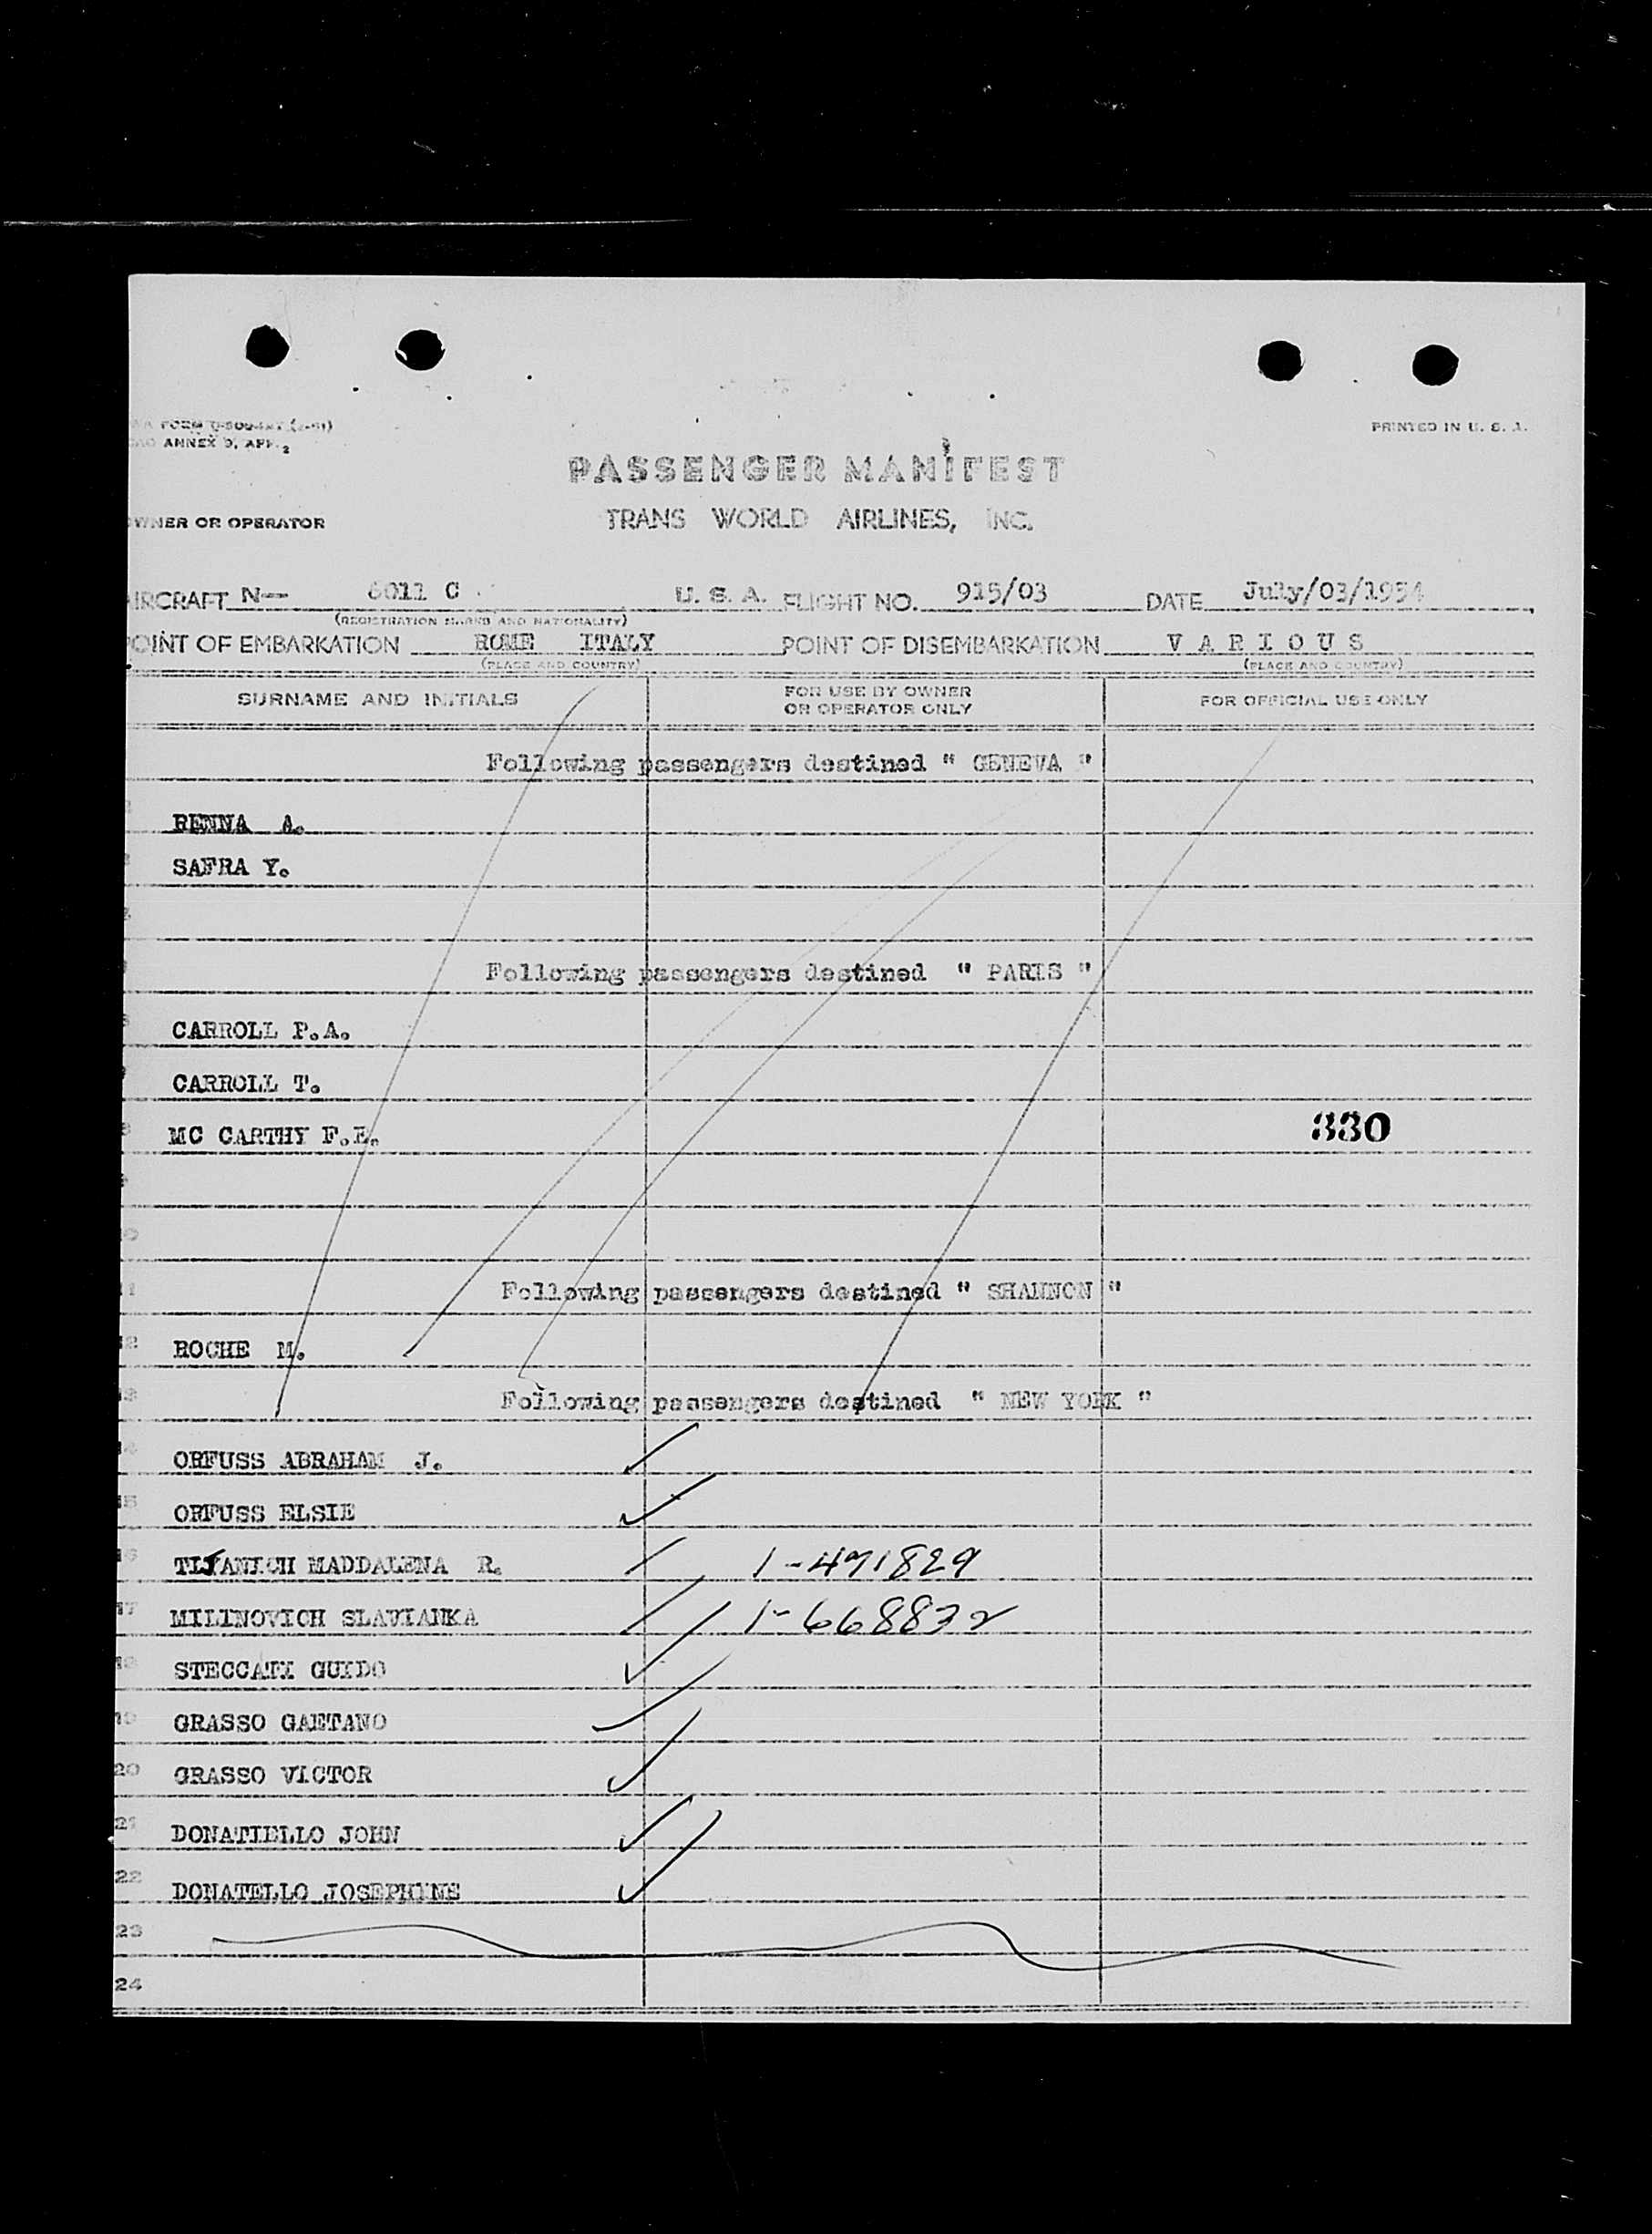 FORM
ANNEX 9, APP. 2
PRINTED IN U. S. A.
PASSENGER MANIFEST
OWNER OR OPERATOR TRANS WORLD AIRLINES, INC.
AIRCRAFT N— 6011 C U. S. A. FLIGHT NO. 915/03 DATE July/03/1954
(REGISTRATION MARKS AND NATIONALITY)
POINT OF EMBARKATION ROME ITALY POINT OF DISEMBARKATION V A R I O U S
(PLACE AND COUNTRY) (PLACE AND COUNTRY)
SURNAME AND INITIALS FOR USE BY OWNER OR OPERATOR ONLY FOR OFFICIAL USE ONLY
Following passengers destined " GENEVA "
RENNA A.
SAFRA Y.
Following passengers destined " PARIS "
CARROLL P.A.
CARROLL T.
MC CARTHY F.E. 330
10
11 Following passengers destined " SHANNON "
12 ROCHE M.
13 Following passengers destined " NEW YORK "
14 ORFUSS ABRAHAM J.
15 ORFUSS ELSIE
16 TIJANICH MADDALENA R. 1-471829
17 MILINOVICH SLAVIANKA 1-668832
18 STECCATI GUIDO
19 GRASSO GAETANO
20 GRASSO VICTOR
21 DONATIELLO JOHN
22 DONATELLO JOSEPHINE
23
24